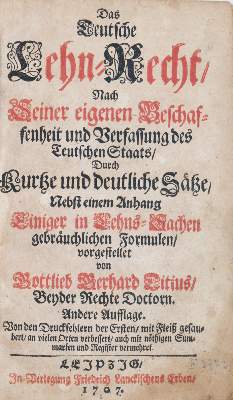 Das
Teutsche
Lehn-Recht/
Nach
Seiner eigenen Beschaf-
fenheit und Verfassung des
Teutschen Staats/
Durch
Kurtze und deutliche Sätze/
Nebst einem Anhang
Einiger in Lehns-Sachen
gebräuchlichen Formulen/
vorgestellet
von
Gottlieb Gerhard Titius/
Beyder Rechte Doctorn.
Andere Aufflage.
Von den Druckfehlern der Ersten/ mit Fleiß gesau-
bert/ an vielen Orten verbessert/ auch mit nöthigen Sum-
marien und Register vermehret.
LEIPZIG/
In Verlegung Friedrich Lanckischens Erben/
1707.